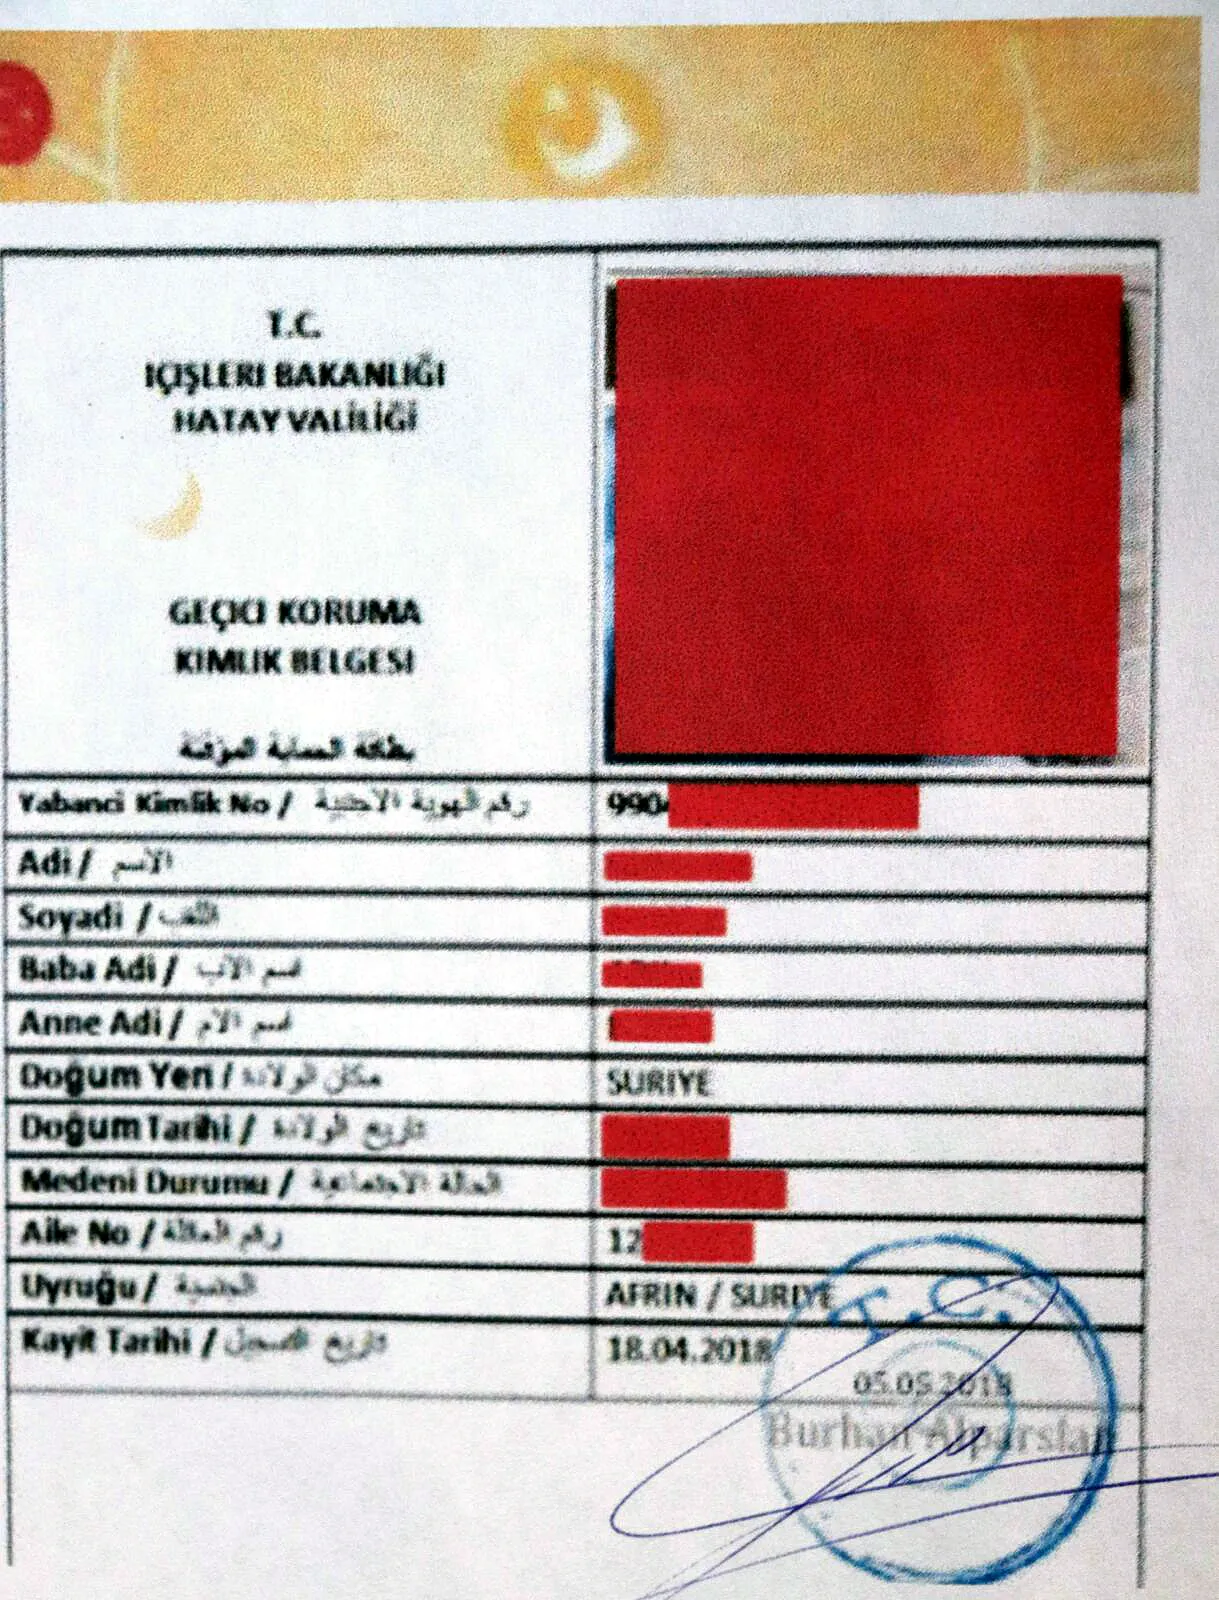 T.C.
IÇIŞLERI BAKANLIĞI
HATAY VALİLİĞİ
GEÇICI KORUMA
KIMLIK BELGESI
بطاقة الحماية المؤقتة
Yabanci Kimlik No / رقم الهوية الاجنبية 990
Adi / الاسم
Soyadi / اللقب
Baba Adi / اسم الاب
Anne Adi / اسم الام
Doğum Yeri / مكان الولادة SURIYE
Doğum Tarihi / تاريخ الولادة
Medeni Durumu / الحالة الاجتماعية
Aile No / رقم العائلة 12
Uyruğu / الجنسية AFRIN / SURIYE
Kayit Tarihi / تاريخ التسجيل 18.04.2018
T.C.
05.05.2018
Burhan Alparslan